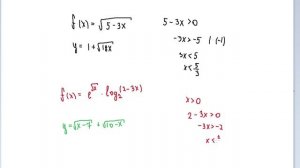 f(x) = √(5-3x)
5-3x>0
-3x>-5 | (-1)
3x<5
x<5/3
y = 1+√
f(x) = e · log₂(2-3x)
x>0
2-3x>0
-3x>-2
x<
y = √(x-7) + √(10-x)